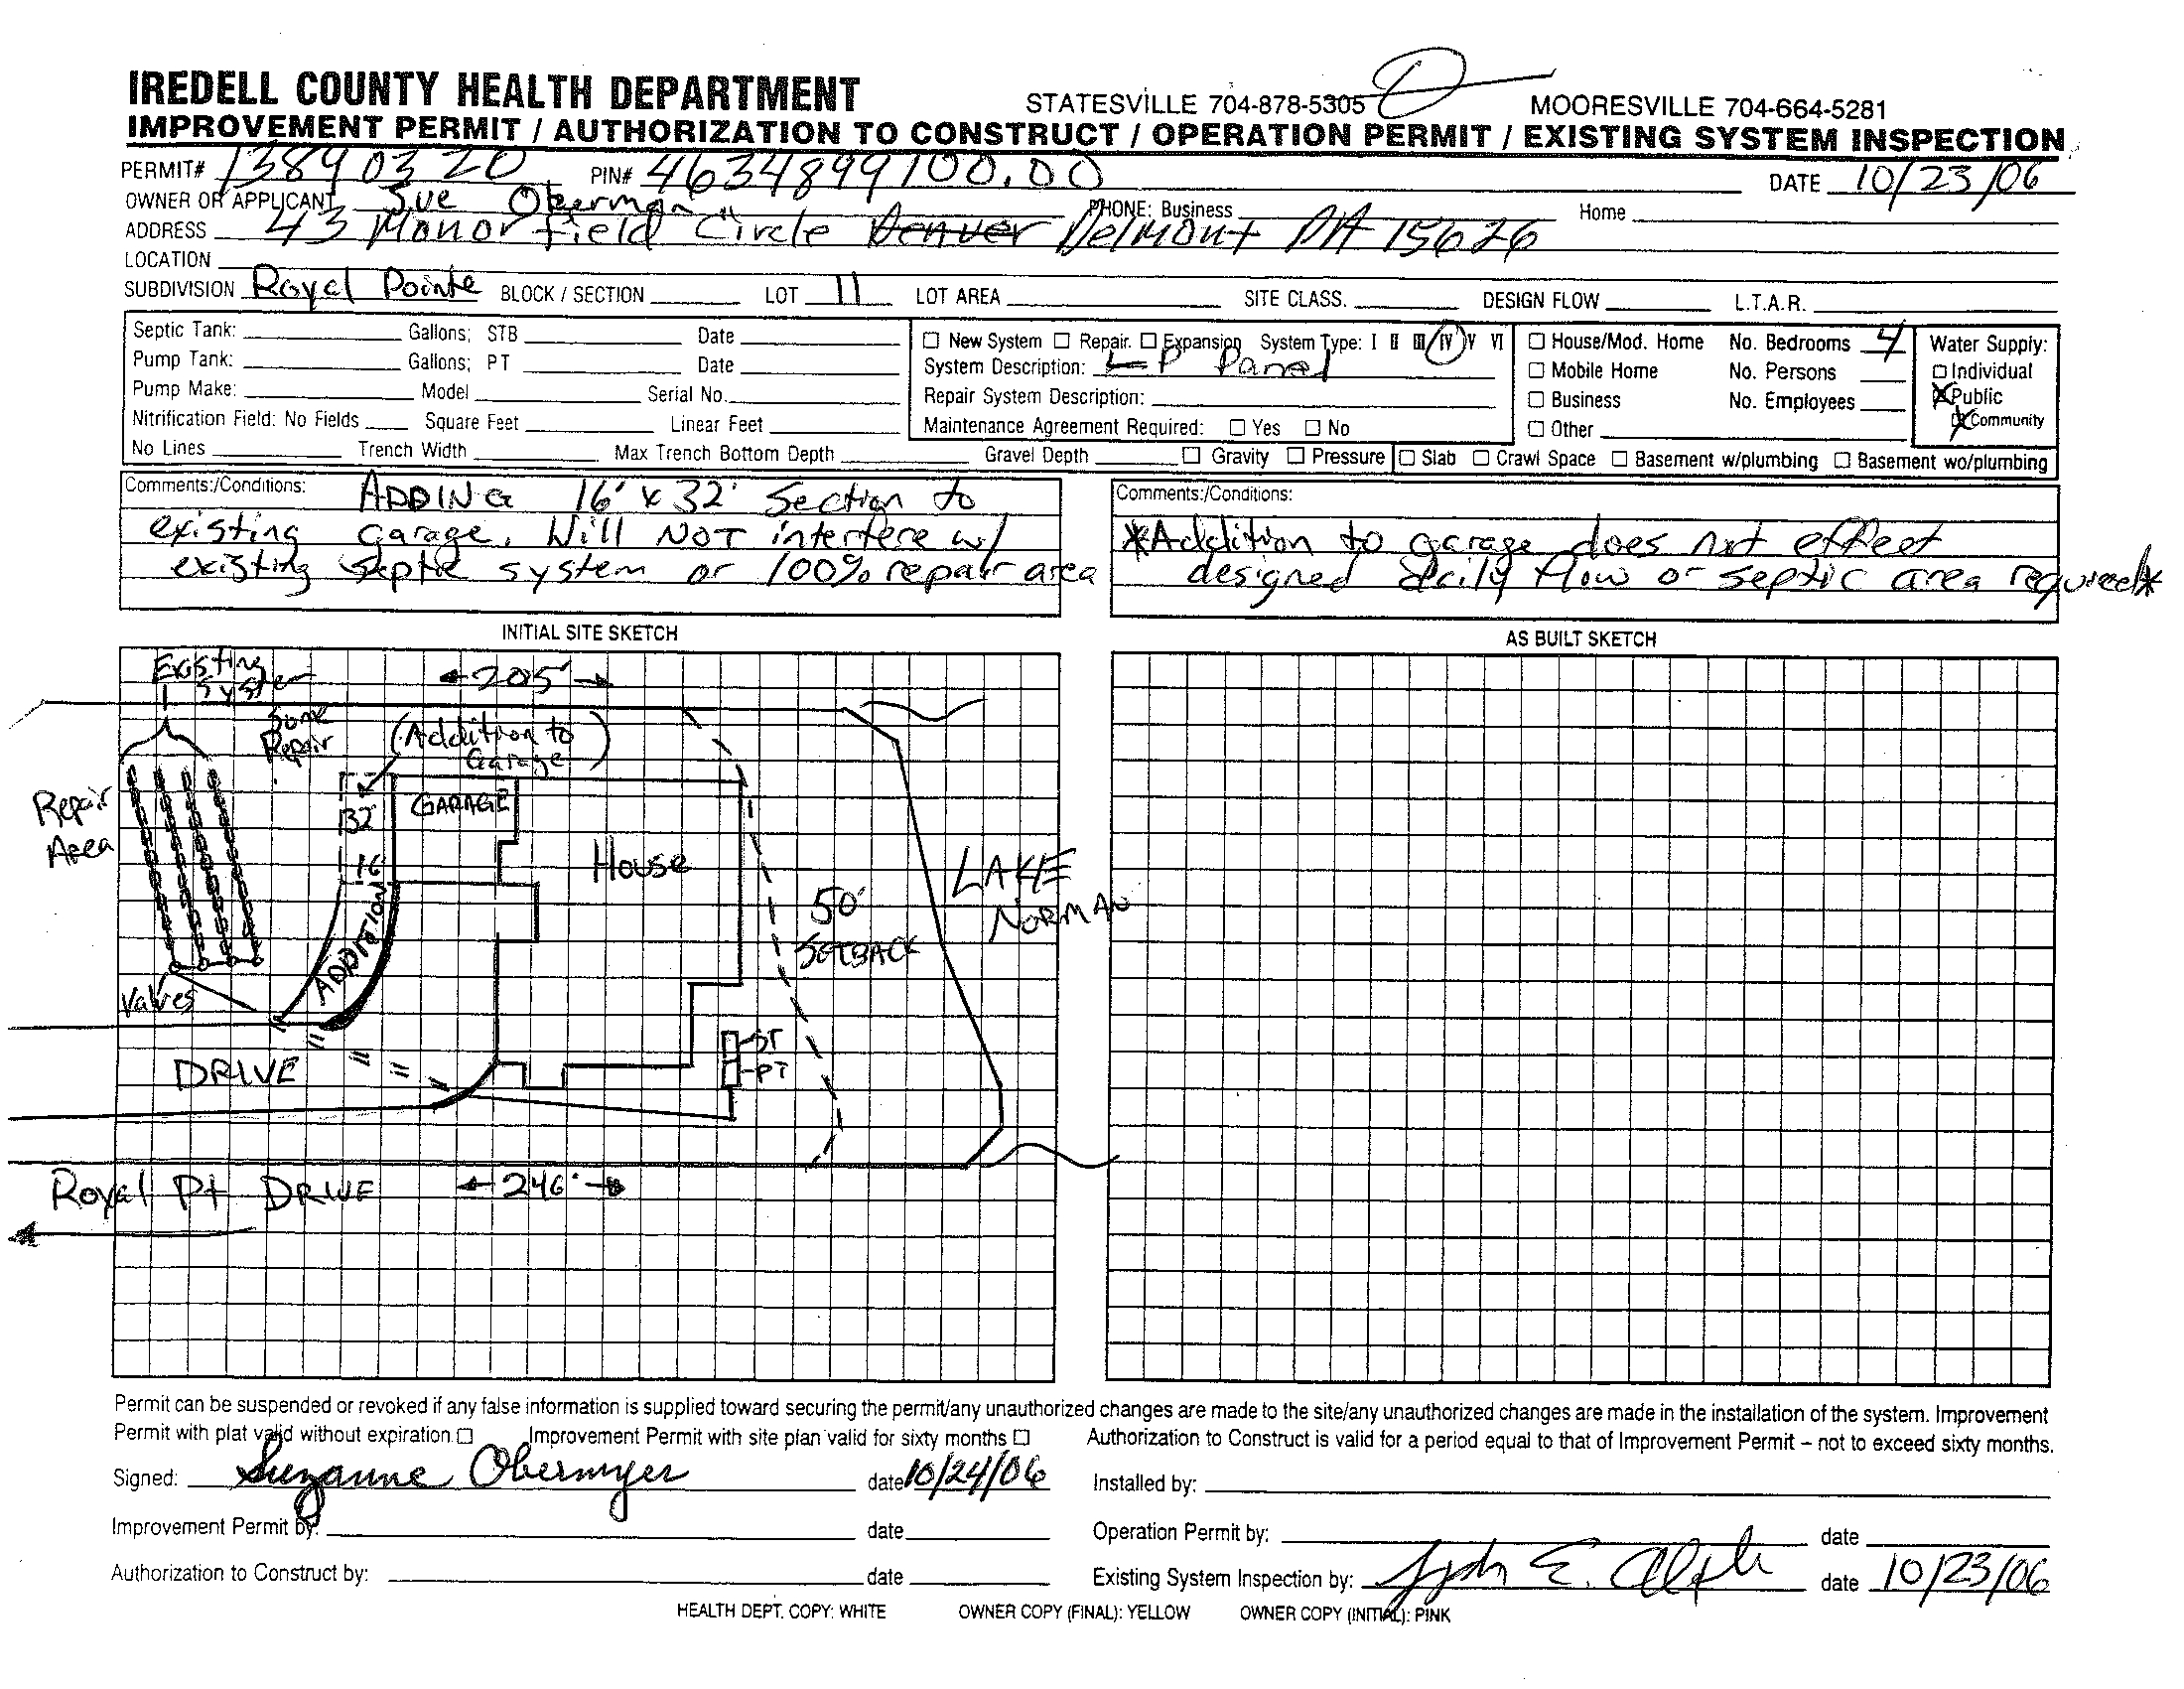 IREDELL COUNTY HEALTH DEPARTMENT STATESVILLE 704-878-5305 MOORESVILLE 704-664-5281
IMPROVEMENT PERMIT / AUTHORIZATION TO CONSTRUCT / OPERATION PERMIT / EXISTING SYSTEM INSPECTION
PERMIT# 13890320 PIN# 4634899100.00 DATE 10/23/06
OWNER OR APPLICANT Sue PHONE: Business Home
ADDRESS 43 Manor Field Circle Denver Delmont PA 15626
LOCATION
SUBDIVISION Royal Pointe BLOCK / SECTION LOT 11 LOT AREA SITE CLASS. DESIGN FLOW L.T.A.R.
Septic Tank: Gallons; STB Date
Pump Tank: Gallons; PT Date
Pump Make: Model Serial No.
Nitrification Field: No Fields Square Feet Linear Feet
No Lines Trench Width Max Trench Bottom Depth Gravel Depth □ Gravity □ Pressure
□ New System □ Repair □ Expansion System Type: I II III IV V VI
System Description: LP Panel
Repair System Description:
Maintenance Agreement Required: □ Yes □ No
□ House/Mod. Home No. Bedrooms 4
□ Mobile Home No. Persons
□ Business No. Employees
□ Other
Water Supply:
□ Individual
X Public
X Community
□ Slab □ Crawl Space □ Basement w/plumbing □ Basement wo/plumbing
Comments:/Conditions: ADDING 16' x 32' Section to
existing garage. Will NOT interfere w/
existing septic system or 100% repair area
Comments:/Conditions:
*Addition to garage does not effect
designed daily flow or septic area required*
INITIAL SITE SKETCH
Existing
System
205'
Some
Repair
(Addition to
Garage)
Repair
Area
32'
GARAGE
16'
House
ADDITION
50'
SETBACK
LAKE
NORMAN
Valves
ST
PT
DRIVE
Royal Pt DRIVE
246'
AS BUILT SKETCH
Permit can be suspended or revoked if any false information is supplied toward securing the permit/any unauthorized changes are made to the site/any unauthorized changes are made in the installation of the system. Improvement
Permit with plat valid without expiration □ Improvement Permit with site plan valid for sixty months □ Authorization to Construct is valid for a period equal to that of Improvement Permit – not to exceed sixty months.
Signed: Suzanne Obermyer date 10/24/06 Installed by:
Improvement Permit by: date Operation Permit by: date
Authorization to Construct by: date Existing System Inspection by: date 10/23/06
HEALTH DEPT. COPY: WHITE OWNER COPY (FINAL): YELLOW OWNER COPY (INITIAL): PINK